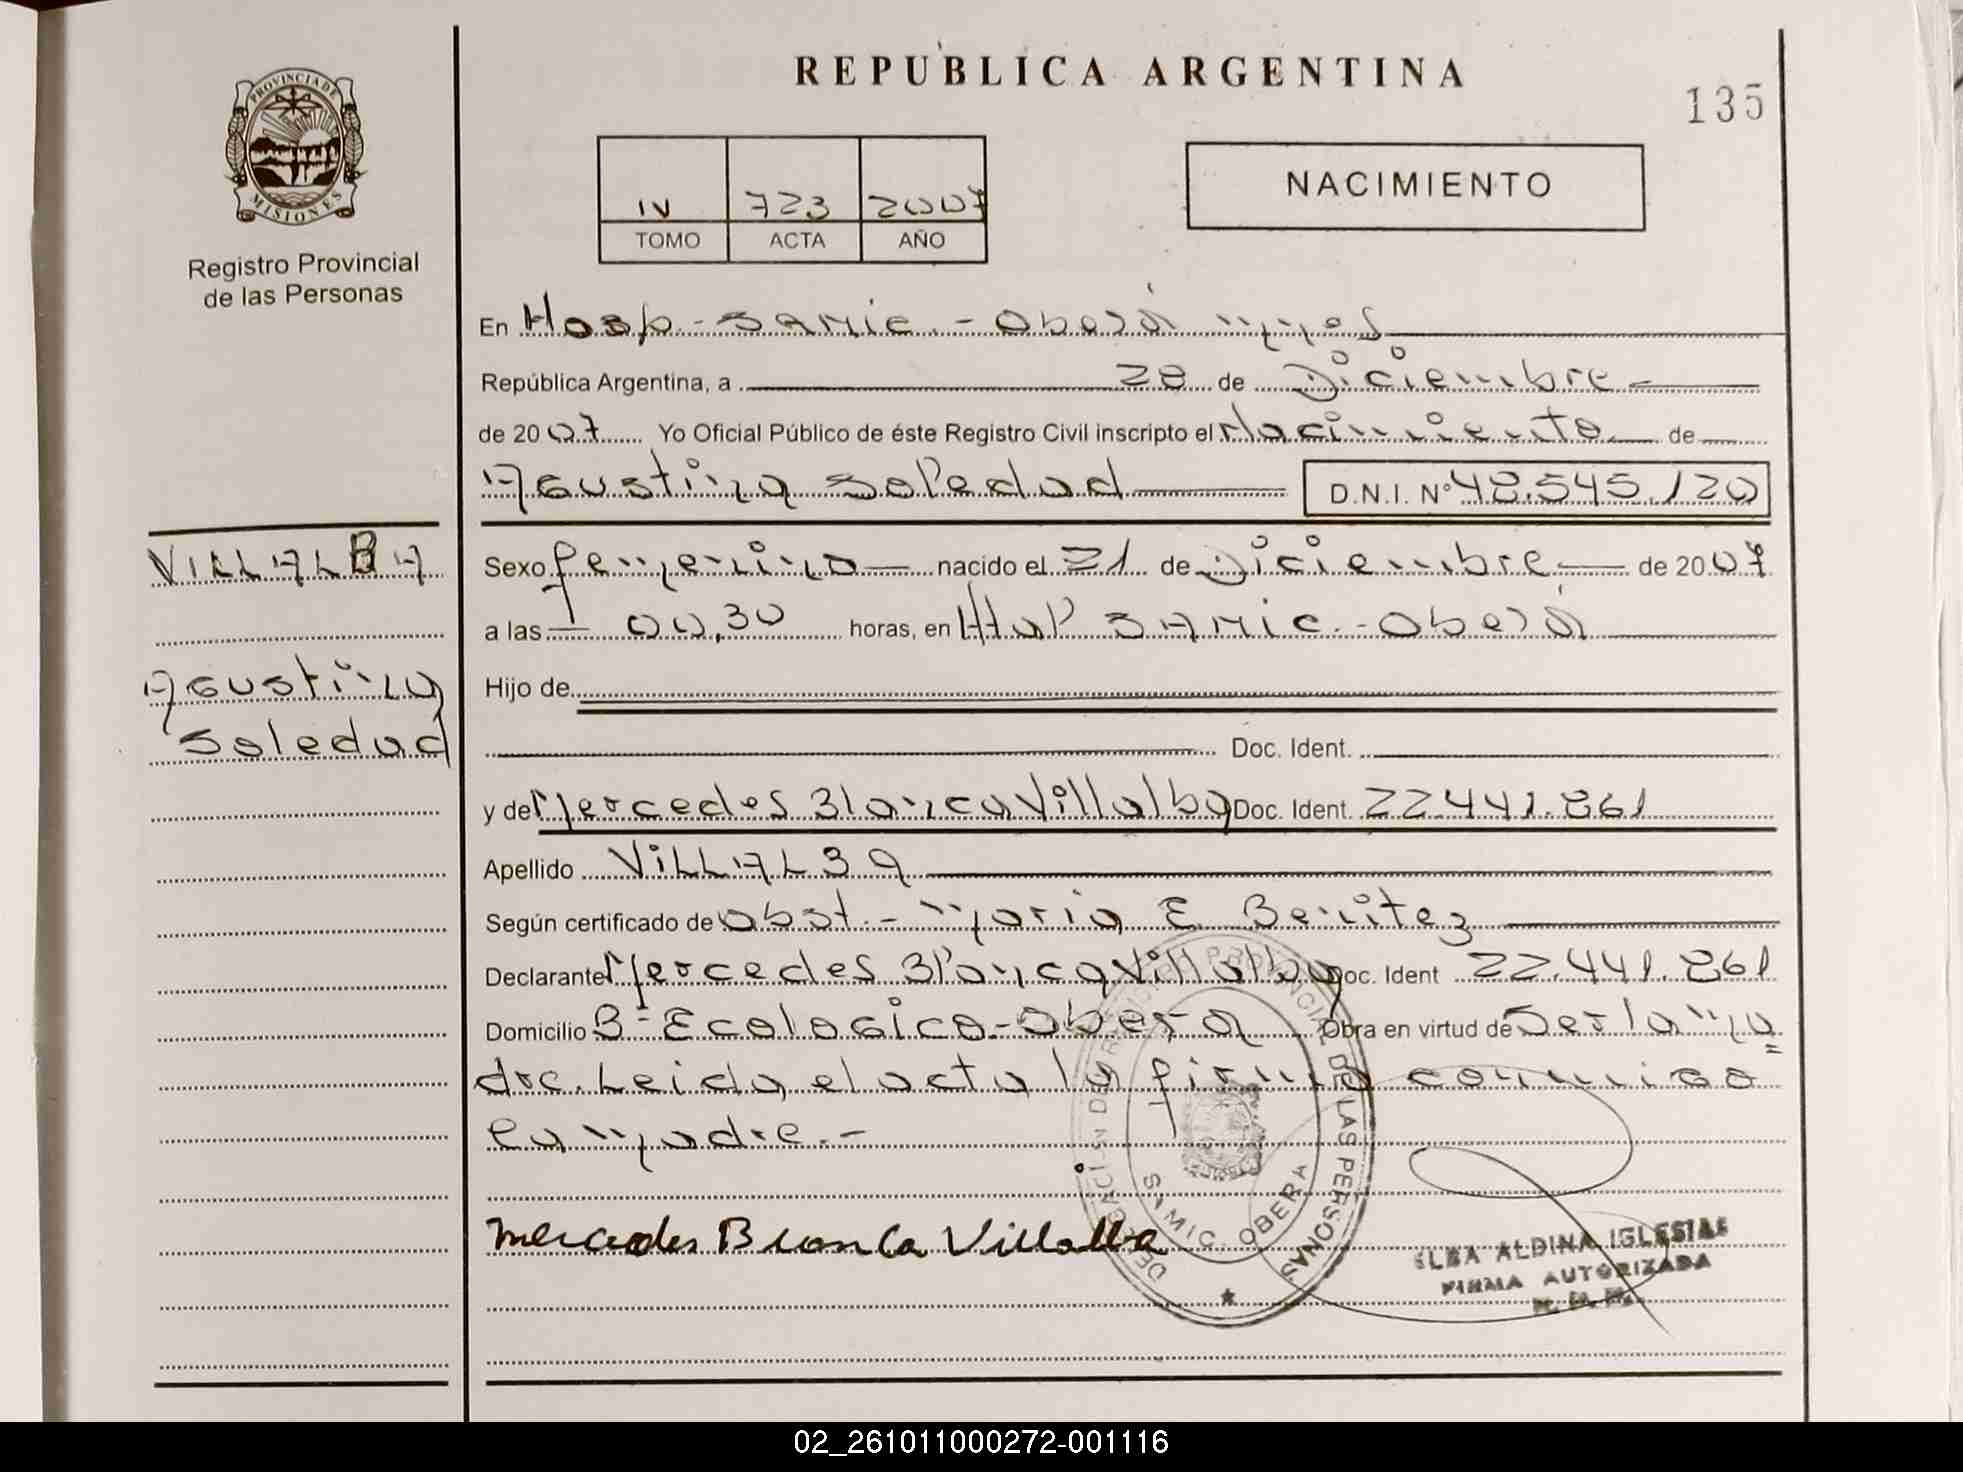 REPUBLICA ARGENTINA
135
PROVINCIA DE
MISIONES
Registro Provincial
de las Personas
IV 723 2007
TOMO ACTA AÑO
NACIMIENTO
En Hosp - SAMIC. - Oberá Mnes
República Argentina, a 28 de Diciembre
de 2007 Yo Oficial Público de éste Registro Civil inscripto el Nacimiento de
Agustina Soledad D.N.I. Nº 48.545.120
VILLALBA
Agustina
Soledad
Sexo femenino nacido el 21 de Diciembre de 2007
a las 00,30 horas, en Hosp SAMIC. - Oberá
Hijo de
Doc. Ident.
y de Mercedes Blanca Villalba Doc. Ident. 22.441.861
Apellido VILLALBA
Según certificado de Obst. - Maria E. Benitez
Declarante Mercedes Blanca Villalba Doc. Ident 22.441.861
Domicilio Bº Ecologico - Oberá Obra en virtud de Ser la ma
dre. Leida el acta la firma conmigo
la madre. -
Mercedes Blanca Villalba
DELEGACION DEL REGISTRO PROVINCIAL DE LAS PERSONAS
SAMIC. OBERA
ELBA ALDINA IGLESIAS
FIRMA AUTORIZADA
02_261011000272-001116